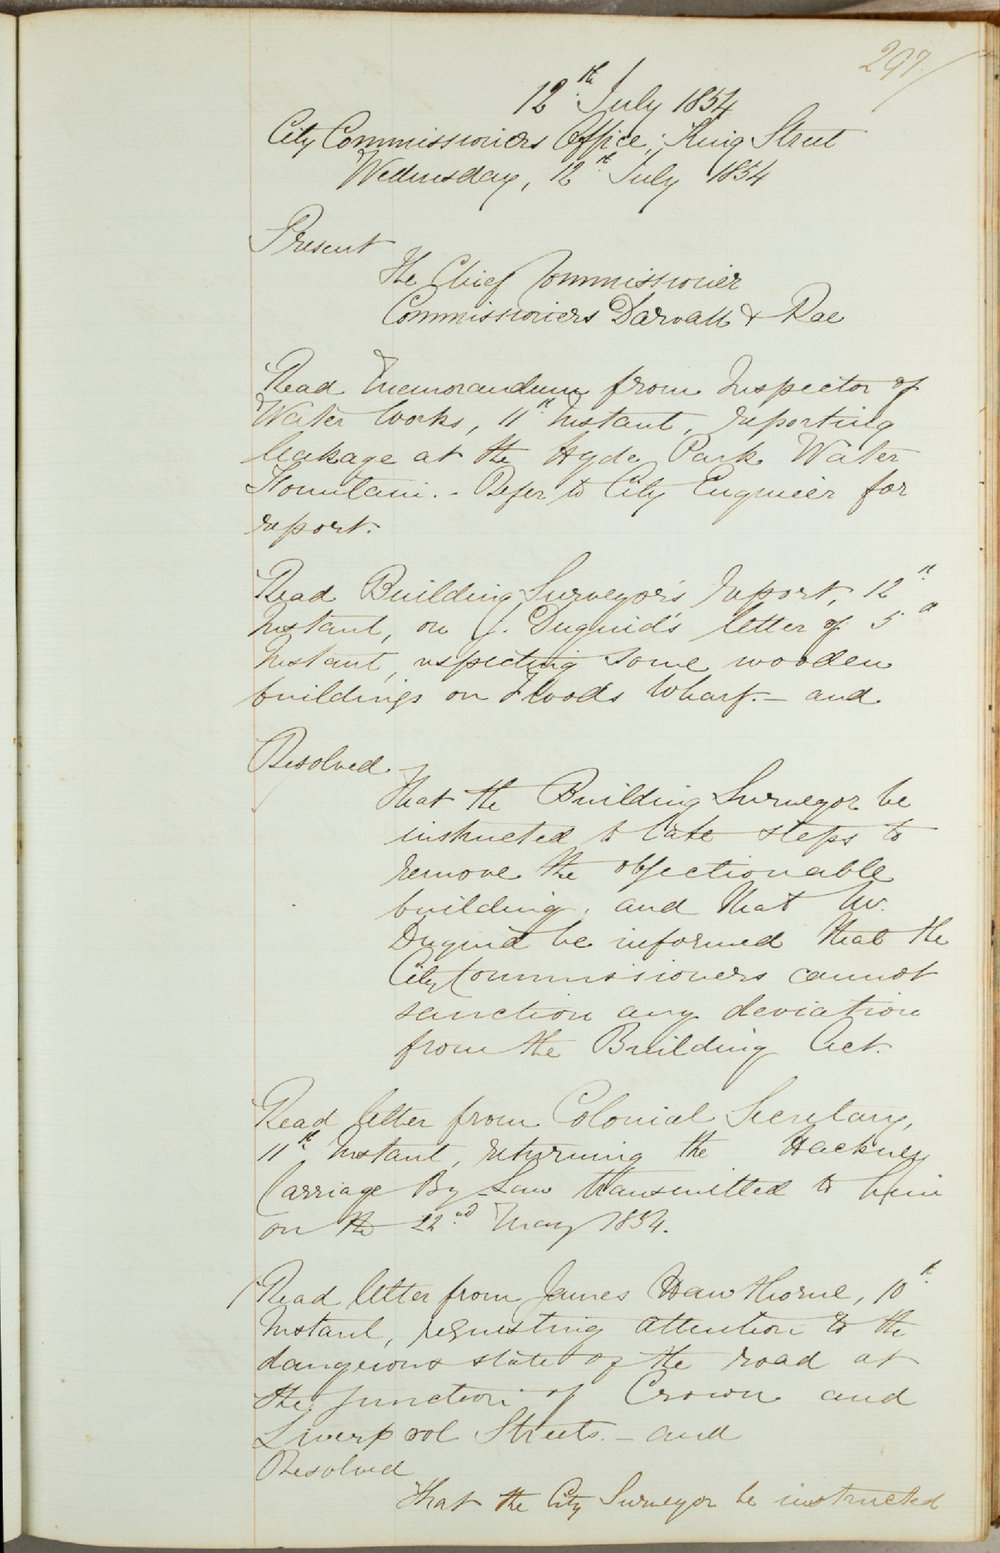 297
12th July 1854
City Commissioners Office; King Street
Wednesday, 12th July 1854
Present
The Chief Commissioner
Commissioners Darvall & Rae
Read Memorandum from Inspector of
Water Works, 11th Instant, reporting
leakage at the Hyde Park Water
Fountain. - Refer to City Engineer for
report.
Read Building Surveyor's report, 12th
Instant, on J. Duguid's letter of 5th
Instant, respecting some wooden
buildings on Floods Wharf. - and
Resolved
That the Building Surveyor be
instructed to take steps to
remove the objectionable
building, and that Mr.
Duguid be informed that the
City Commissioners cannot
sanction any deviation
from the Building Act.
Read letter from Colonial Secretary,
11th Instant, returning the Hackney
Carriage By-Law transmitted to him
on the 22nd May 1854.
Read letter from James Hawthorne, 10th
Instant, requesting attention to the
dangerous state of the road at
the junction of Crown and
Liverpool Streets. - and
Resolved
That the City Surveyor be instructed